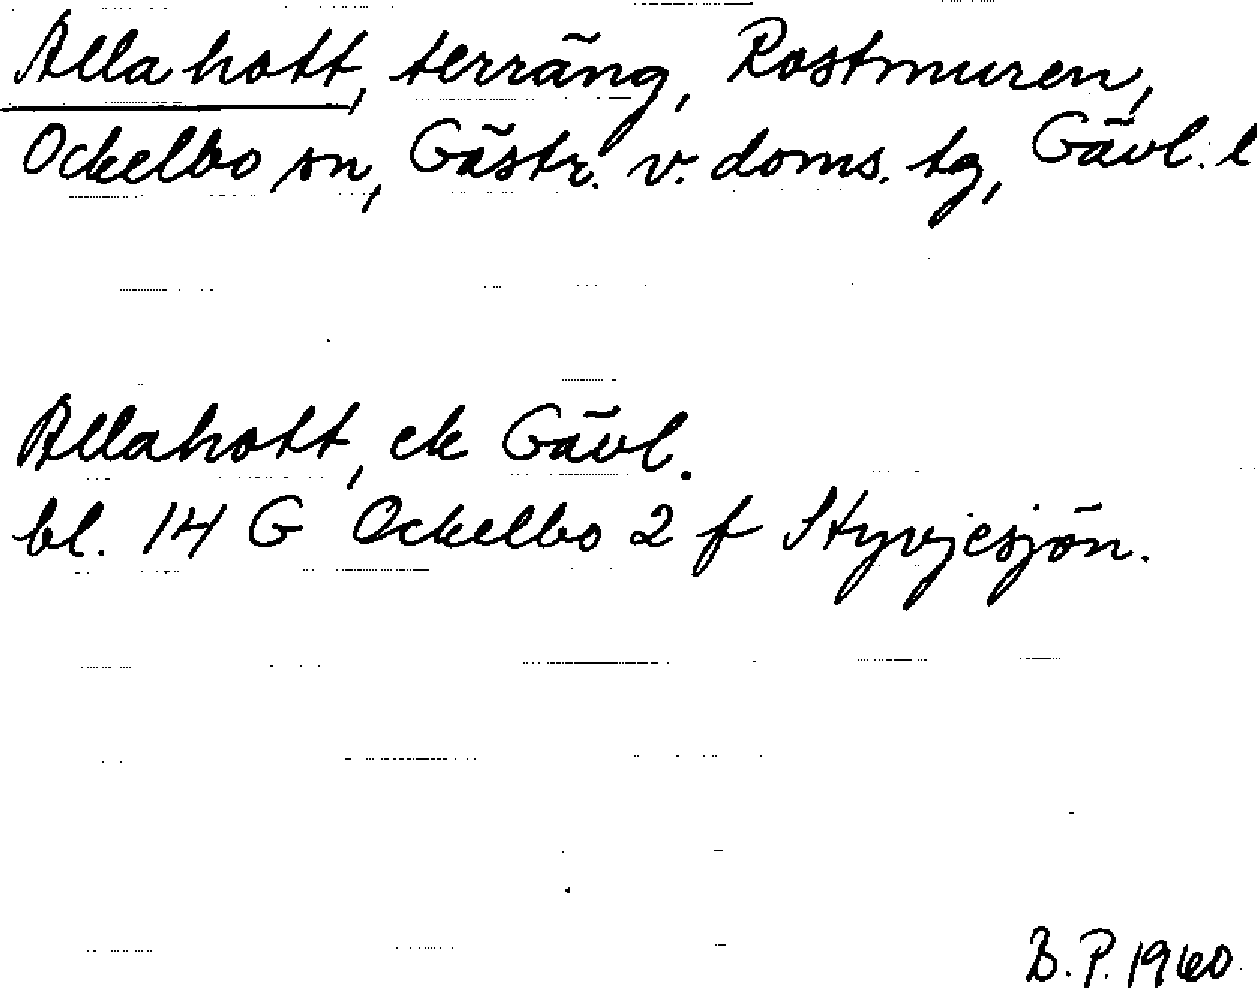 Allahott, terräng, Rostmuren,
Ockelbo sn, Gästr. v. doms. tg, Gävl. l
Allahott, ek Gävl.
bl. 14 G Ockelbo 2 f Styvjesjön.
B.P. 1960